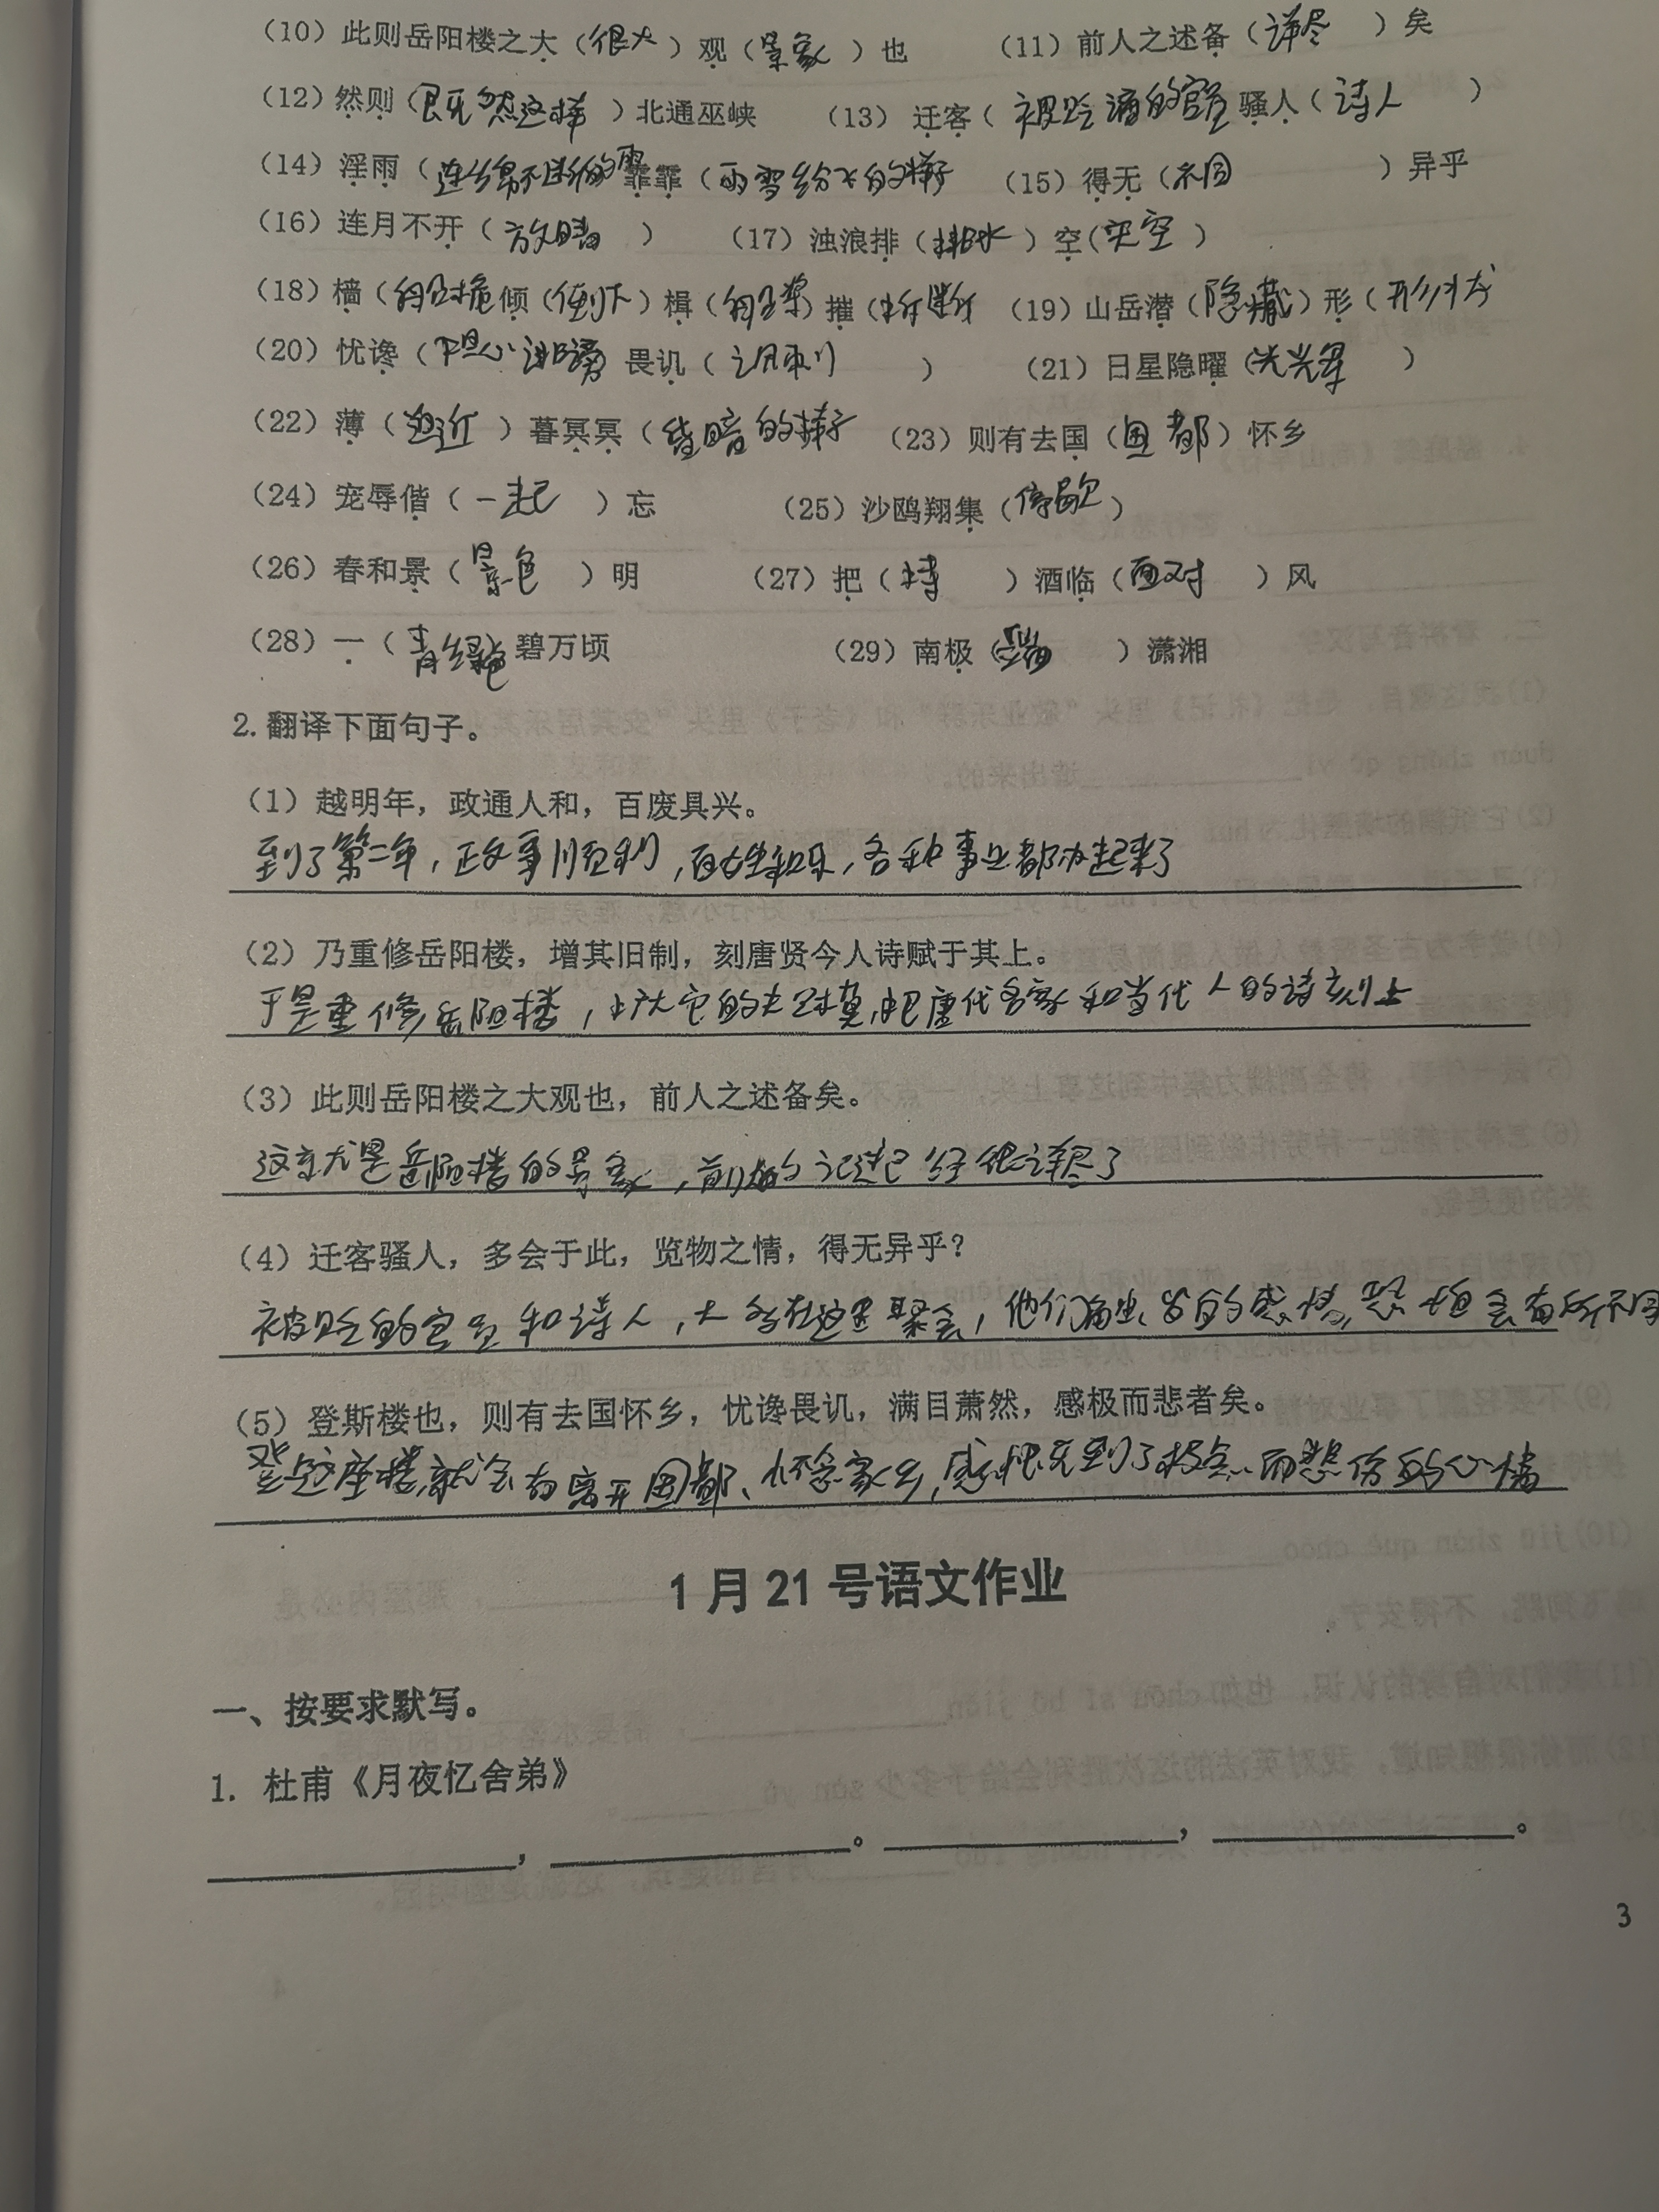 (10) 此则岳阳楼之大（很大）观（景象）也 (11) 前人之述备（详尽）矣
(12) 然则（既然这样）北通巫峡 (13) 迁客（被贬谪的官员 骚人（诗人）
(14) 淫雨（连绵不断的雨 霏霏（雨雪纷飞的样子 (15) 得无（不同）异乎
(16) 连月不开（放晴） (17) 浊浪排（排水）空（天空）
(18) 樯（船桅 倾（倒下）楫（船桨）摧（折断 (19) 山岳潜（隐藏）形（形状
(20) 忧谗（担心 畏讥（讽刺） (21) 日星隐曜（光辉）
(22) 薄（迫近）暮冥冥（昏暗的样子 (23) 则有去国（国都）怀乡
(24) 宠辱偕（一起）忘 (25) 沙鸥翔集（停歇）
(26) 春和景（景色）明 (27) 把（持）酒临（面对）风
(28) 一（青绿色）碧万顷 (29) 南极（端）潇湘
2. 翻译下面句子。
(1) 越明年，政通人和，百废具兴。
到了第二年，政事顺利，百姓和乐，各种事业都办起来了
(2) 乃重修岳阳楼，增其旧制，刻唐贤今人诗赋于其上。
于是重修岳阳楼，扩大它的规模，把唐代名家和当代人的诗刻上
(3) 此则岳阳楼之大观也，前人之述备矣。
这就是岳阳楼的景象，前人的记述已经很详尽了
(4) 迁客骚人，多会于此，览物之情，得无异乎？
被贬的官员和诗人，大多在这里聚会，他们 的感情，恐怕会有所不同
(5) 登斯楼也，则有去国怀乡，忧谗畏讥，满目萧然，感极而悲者矣。
登这座楼，就会有离开国都、怀念家乡，感慨到了极点而悲伤的心情
1 月 21 号语文作业
一、按要求默写。
1. 杜甫《月夜忆舍弟》
， 。 ， 。
3